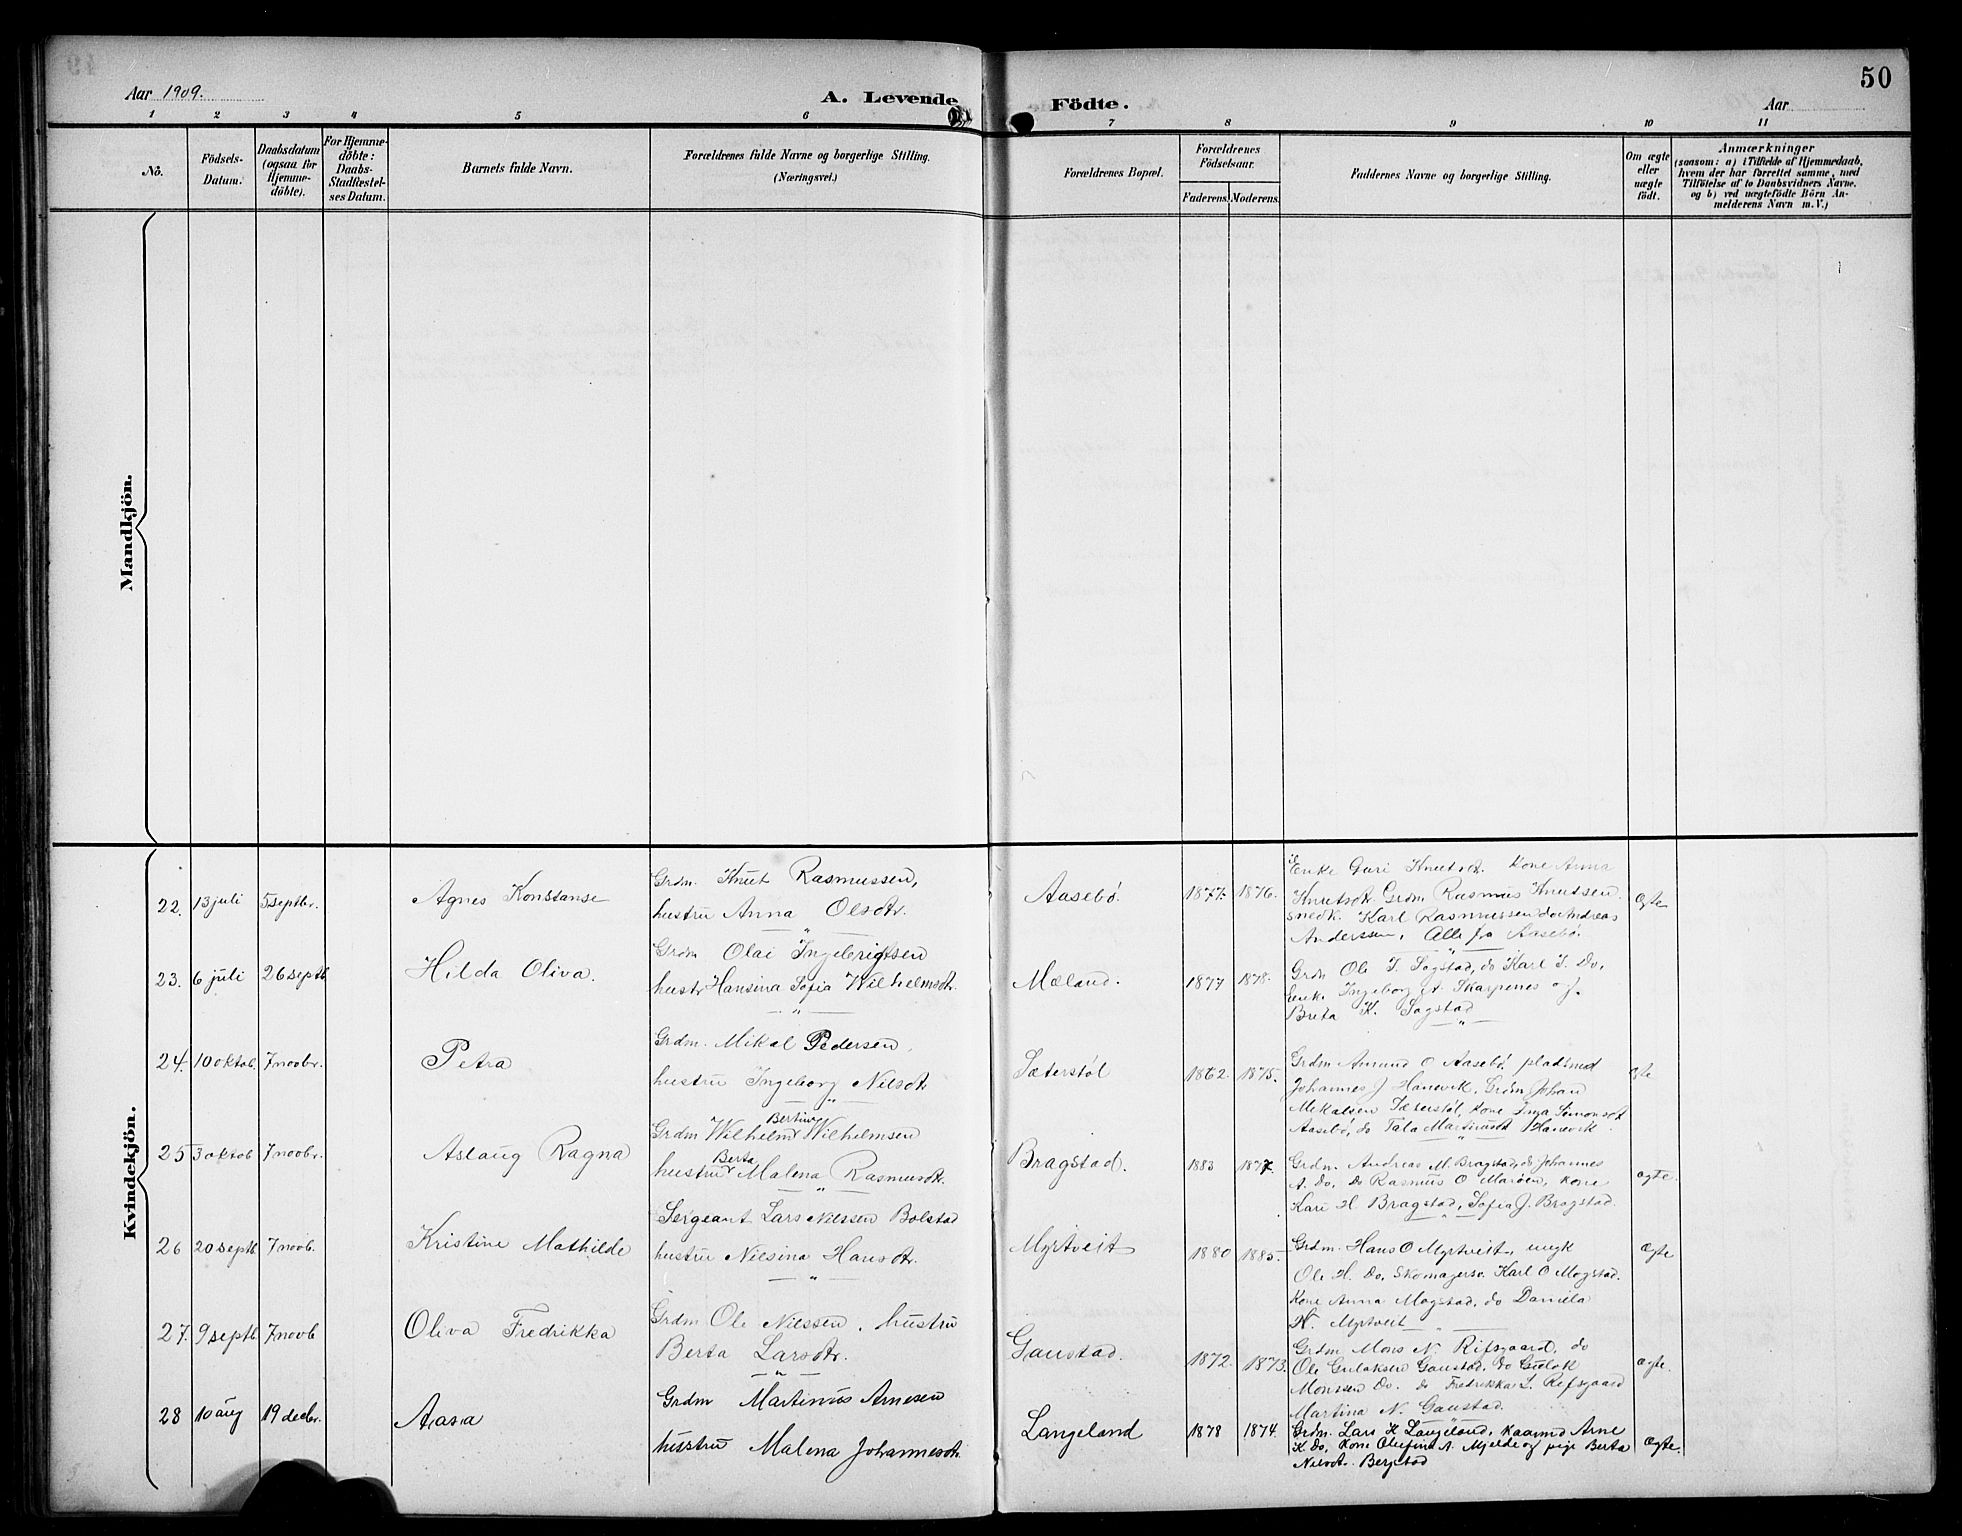 50
Aar 1909.
A. Levende
Födte.
Aar
1 2 3 4 5 6 7 8 9 10 11
No.
Födsels-
Datum.
Daabsdatum
(ogsaa for
Hjemme-
döbte).
For Hjemme-
döbte:
Daabs-
Stadfæstel-
ses Datum.
Barnets fulde Navn.
Forældrenes fulde Navne og borgerlige Stilling.
(Næringsvei.)
Forældrenes Bopæl.
Forældrenes
Födselsaar.
Faderens.
Moderens.
Faddernes Navne og borgerlige Stilling.
Om ægte
eller
uægte
födt.
Anmærkninger
(saasom: a) i Tilfælde af Hjemmedaab,
hvem der har forrettet samme, med
Tilföielse af to Daabsvidners Navne.
og b) ved uægtefödte Börn An-
melderens Navn m. V.)
Mandkjön.
Kvindekjön.
22. 13 juli 5 septbr. Agnes Konstanse
Grdm. Knut Rasmussen,
hustru Anna Olsdtr.
Aasebö 1877. 1876.
Enke Guri Knutsdt. kone Anna
Knutsdt. Grdm Rasmus Knutsen
snedk. Karl Rasmussen do Andreas
Anderssen, Alle fra Aasebö.
Ægte
23. 6 juli 26 septb Hilda Oliva.
Grdm Olai Ingebrigtsen
hustr Hansina Sofia Wilhelmsdtr.
Mæland. 1877 1878.
Grdm Ole I. Sagstad, do Karl I. Do,
Enke Ingeborg A. Skarpenes og
Breta K. Sagstad
24. 10 oktob. 7 novbr. Petra
Grdm. Mikal Pedersen,
hustru Ingeborg Nilsdtr.
Sæterstöl 1862. 1875.
Grdm Amund O Aasebö, pladsmd
Johannes J Hanevik, Grdm Johan
Mekalsen Sæterstöl, Kone Inga Simonsdt
Aasebö, do Tala Martinusdt Hanevik.
Ægte
25 3 oktob 7 novbr. Aslaug Ragna
Bertin
Grdm Wilhelm Wilhelmsen
Berta
hustru Malena Rasmusdtr.
Bragstad. 1883 1877
Grdm. Andreas M. Bragstad, do Johannes
A. Do, do Rasmus O Maröen, kone
Kari H Bragstad, Sofia J. Bragstad.
Ægte.
26 20 septb. 7 novb. Kristine Mathilde
Sergeant Lars Nilssen Bolstad
hustru Nilsina Hansdtr.
Myrtveit 1880 1885.
Grdm. Hans O Myrtveit, ungk
Ole H. Do, Skomagersv. Karl O Mogstad.
Kone Anna Mogstad, do Daniela
H. Myrtveit
Ægte
27. 9 septb. 7 novb Oliva Fredrikka
Grdm Ole Nilssen, hustru
Berta Larsdtr.
Gaustad. 1872. 1873.
Grdm Mons N. Rifsgaard, do
Ole Gulaksen Gaustad, do Gulak
Monssen Do. do Fredrikka L. Rifsgaard
Martina N. Gaustad.
Ægte.
28 10 aug 19 decbr. Aasa
Grdm Martinus Arnesen
hustru Malena Johannesdtr.
Langeland 1878 1874.
Grdm. Lars K Langeland, Kaarmd Arne
K. Do, Kone Olufine A. Mjelde og pige Berta
Nilsdt. Bergstad
Ægte.